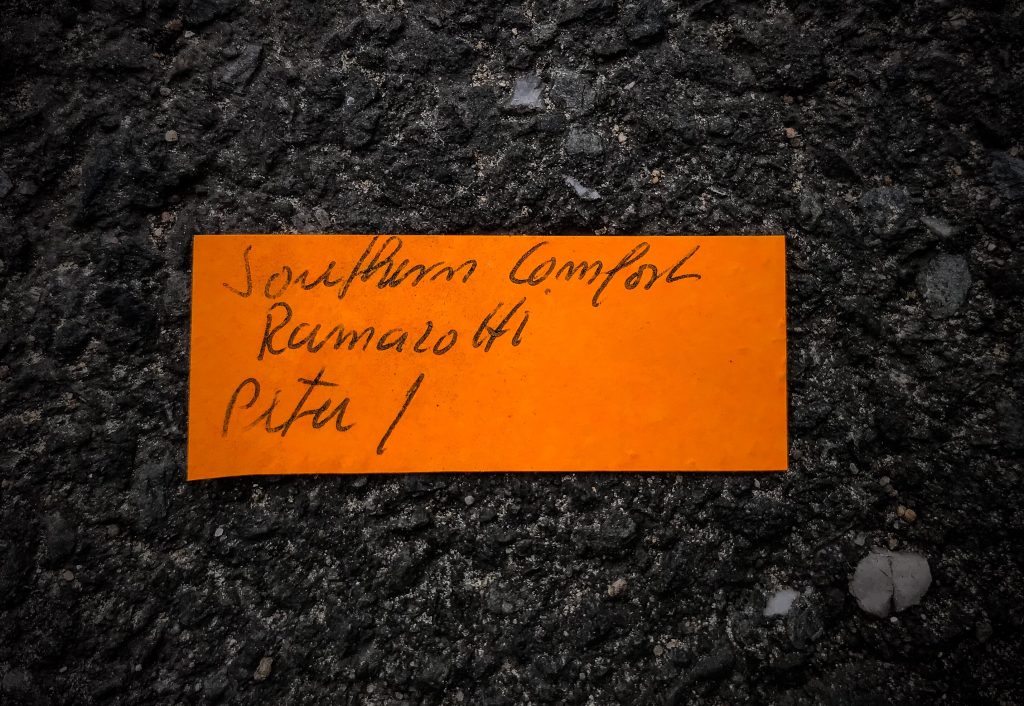 Southern Comfort
Ramazotti
Peter /